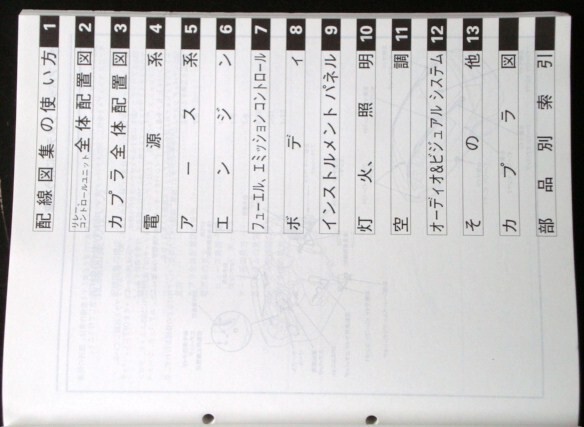 1 配線図集の使い方
2 リレー、コントロールユニット全体配置図
3 カプラ全体配置図
4 電源系
5 アース系
6 エンジン
7 フューエル、エミッションコントロール
8 ボディ
9 インストルメントパネル
10 灯火、照明
11 空調
12 オーディオ&ビジュアルシステム
13 その他
カプラ図
部品別索引